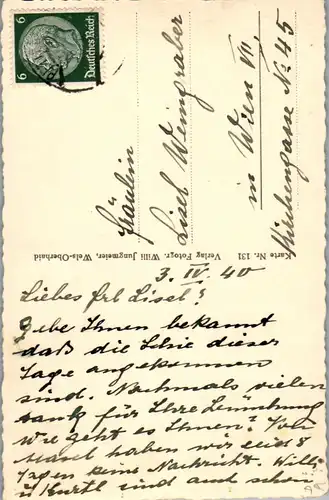 6 Deutsches Reich 6
Fräulein
Lisel Weingraber
in Wien VII.
Kirchengasse Nº 45
Karte Nr. 131
Verlag Fotogr. Willi Jungmeier, Wels-Oberhaid
3. IV. 40
Liebes Frl Lisel!
Gebe Ihnen bekannt
daß die Schie dieser
Tage angekommen
sind. Nochmals vielen
Dank für Ihre Bemühung
Wie geht es Ihnen? Von
Hasel haben wir seid 8
Tagen keine Nachricht. Willi
u Kurtl sind auch schon